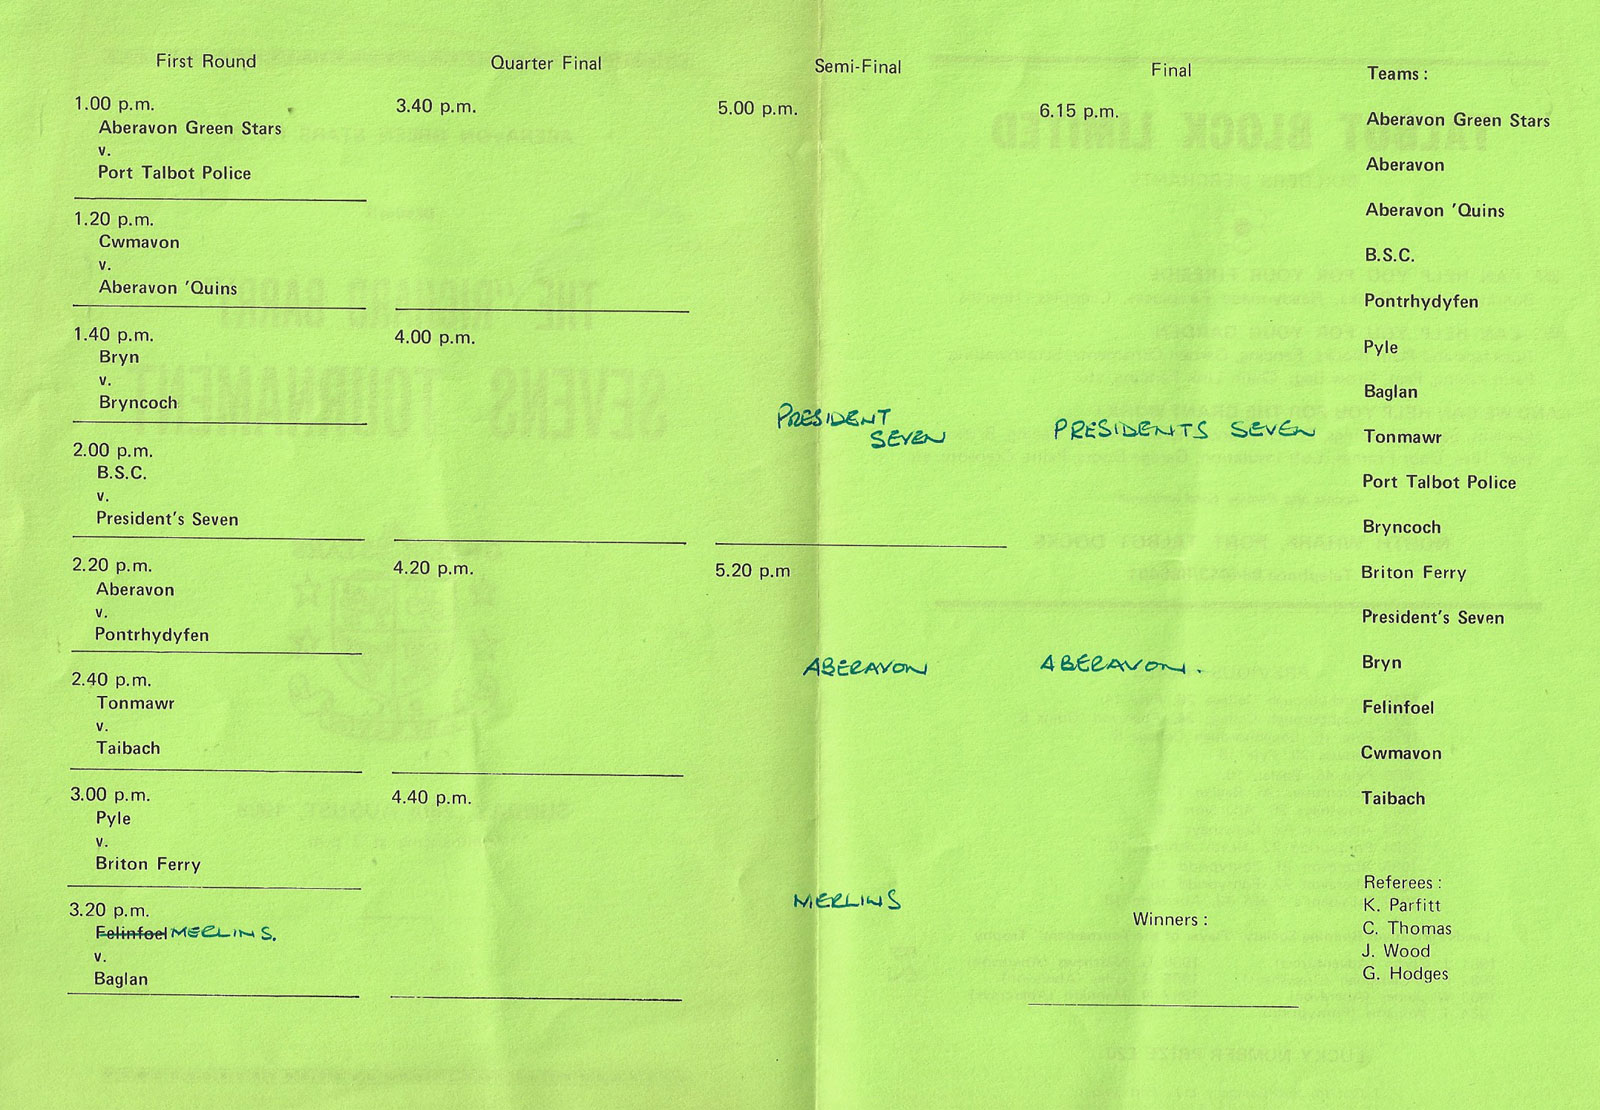 First Round
1.00 p.m.
Aberavon Green Stars
v.
Port Talbot Police
1.20 p.m.
Cwmavon
v.
Aberavon 'Quins
1.40 p.m.
Bryn
v.
Bryncoch
2.00 p.m.
B.S.C.
v.
President's Seven
2.20 p.m.
Aberavon
v.
Pontrhydyfen
2.40 p.m.
Tonmawr
v.
Taibach
3.00 p.m.
Pyle
v.
Briton Ferry
3.20 p.m.
Felinfoel MERLINS.
v.
Baglan
Quarter Final
3.40 p.m.
4.00 p.m.
4.20 p.m.
4.40 p.m.
Semi-Final
5.00 p.m.
PRESIDENT
SEVEN
5.20 p.m
ABERAVON
MERLINS
Final
6.15 p.m.
PRESIDENTS SEVEN
ABERAVON.
Winners :
Teams :
Aberavon Green Stars
Aberavon
Aberavon 'Quins
B.S.C.
Pontrhydyfen
Pyle
Baglan
Tonmawr
Port Talbot Police
Bryncoch
Briton Ferry
President's Seven
Bryn
Felinfoel
Cwmavon
Taibach
Referees :
K. Parfitt
C. Thomas
J. Wood
G. Hodges